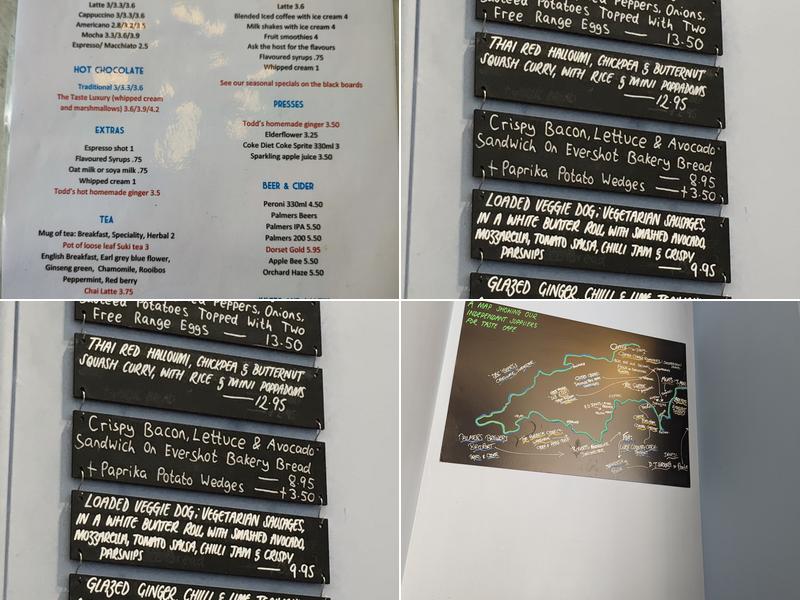 Latte 3/3.3/3.6
Cappuccino 3/3.3/3.6
Americano 2.8/3.2/3.5
Mocha 3.3/3.6/3.9
Espresso/ Macchiato 2.5
HOT CHOCOLATE
Traditional 3/3.3/3.6
The Taste Luxury (whipped cream
and marshmallows) 3.6/3.9/4.2
EXTRAS
Espresso shot 1
Flavoured Syrups .75
Oat milk or soya milk .75
Whipped cream 1
Todd's hot homemade ginger 3.5
TEA
Mug of tea: Breakfast, Speciality, Herbal 2
Pot of loose leaf Suki tea 3
English Breakfast, Earl grey blue flower,
Ginseng green, Chamomile, Rooibos
Peppermint, Red berry
Chai Latte 3.75
Latte 3.6
Blended Iced coffee with ice cream 4
Milk shakes with ice cream 4
Fruit smoothies 4
Ask the host for the flavours
Flavoured syrups .75
Whipped cream 1
See our seasonal specials on the black boards
PRESSES
Todd's homemade ginger 3.50
Elderflower 3.25
Coke Diet Coke Sprite 330ml 3
Sparkling apple juice 3.50
BEER & CIDER
Peroni 330ml 4.50
Palmers Beers
Palmers IPA 5.50
Palmers 200 5.50
Dorset Gold 5.95
Apple Bee 5.50
Orchard Haze 5.50
Peppers, Onions,
Sauteed Potatoes Topped With Two
Free Range Eggs — 13.50
THAI RED HALLOUMI, CHICKPEA & BUTTERNUT
SQUASH CURRY, WITH RICE & MINI POPPADOMS
— 12.95
Crispy Bacon, Lettuce & Avocado
Sandwich On Evershot Bakery Bread
— 8.95
+ Paprika Potato Wedges — +3.50
LOADED VEGGIE DOG; VEGETARIAN SAUSAGES,
IN A WHITE BUNTER ROLL WITH SMASHED AVOCADO,
MOZZARELLA, TOMATO SALSA, CHILLI JAM & CRISPY
PARSNIPS — 9.95
GLAZED GINGER, CHILLI & LIME
Peppers, Onions,
Sauteed Potatoes Topped With Two
Free Range Eggs — 13.50
THAI RED HALLOUMI, CHICKPEA & BUTTERNUT
SQUASH CURRY, WITH RICE & MINI POPPADOMS
— 12.95
Crispy Bacon, Lettuce & Avocado
Sandwich On Evershot Bakery Bread
— 8.95
+ Paprika Potato Wedges — +3.50
LOADED VEGGIE DOG; VEGETARIAN SAUSAGES,
IN A WHITE BUNTER ROLL WITH SMASHED AVOCADO,
MOZZARELLA, TOMATO SALSA, CHILLI JAM & CRISPY
PARSNIPS — 9.95
GLAZED GINGER, CHILLI & LIME
A MAP SHOWING OUR
INDEPENDANT SUPPLIERS
FOR TASTE CAFE
PALMERS BREWERY
BRIDPORT